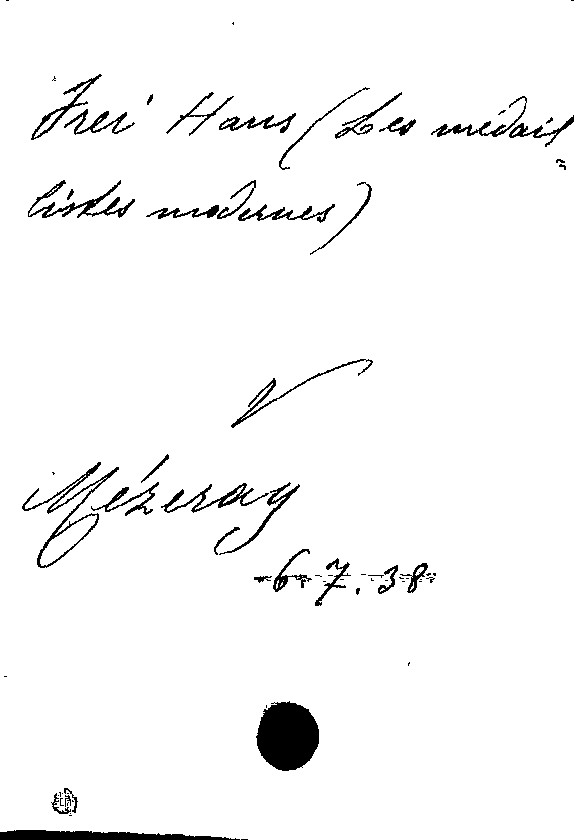 Frei Hans (Les médail=
listes modernes)
V
Mézeray
6 7. 38